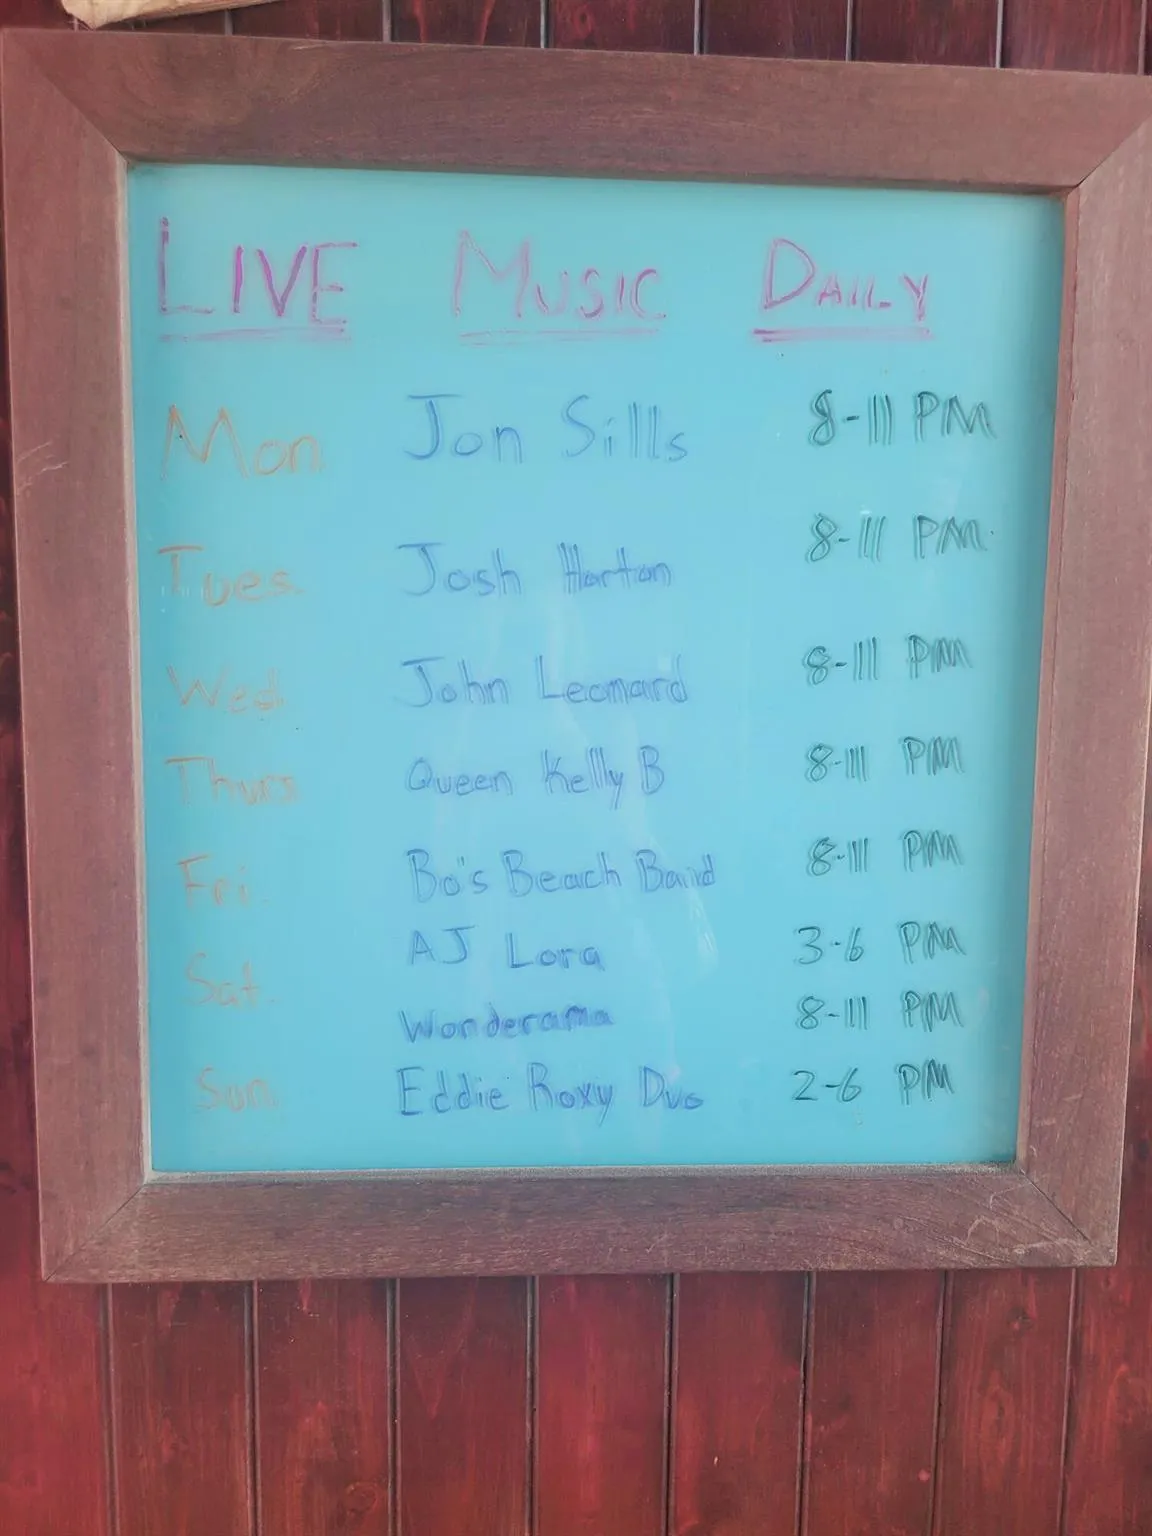 LIVE MUSIC DAILY
Mon. Jon Sills 8-11 PM
Tues. Josh Horton 8-11 PM
Wed. John Leonard 8-11 PM
Thurs. Queen Kelly B 8-11 PM
Fri. Bo's Beach Band 8-11 PM
Sat. AJ Lora 3-6 PM
Wonderama 8-11 PM
Sun. Eddie Roxy Duo 2-6 PM